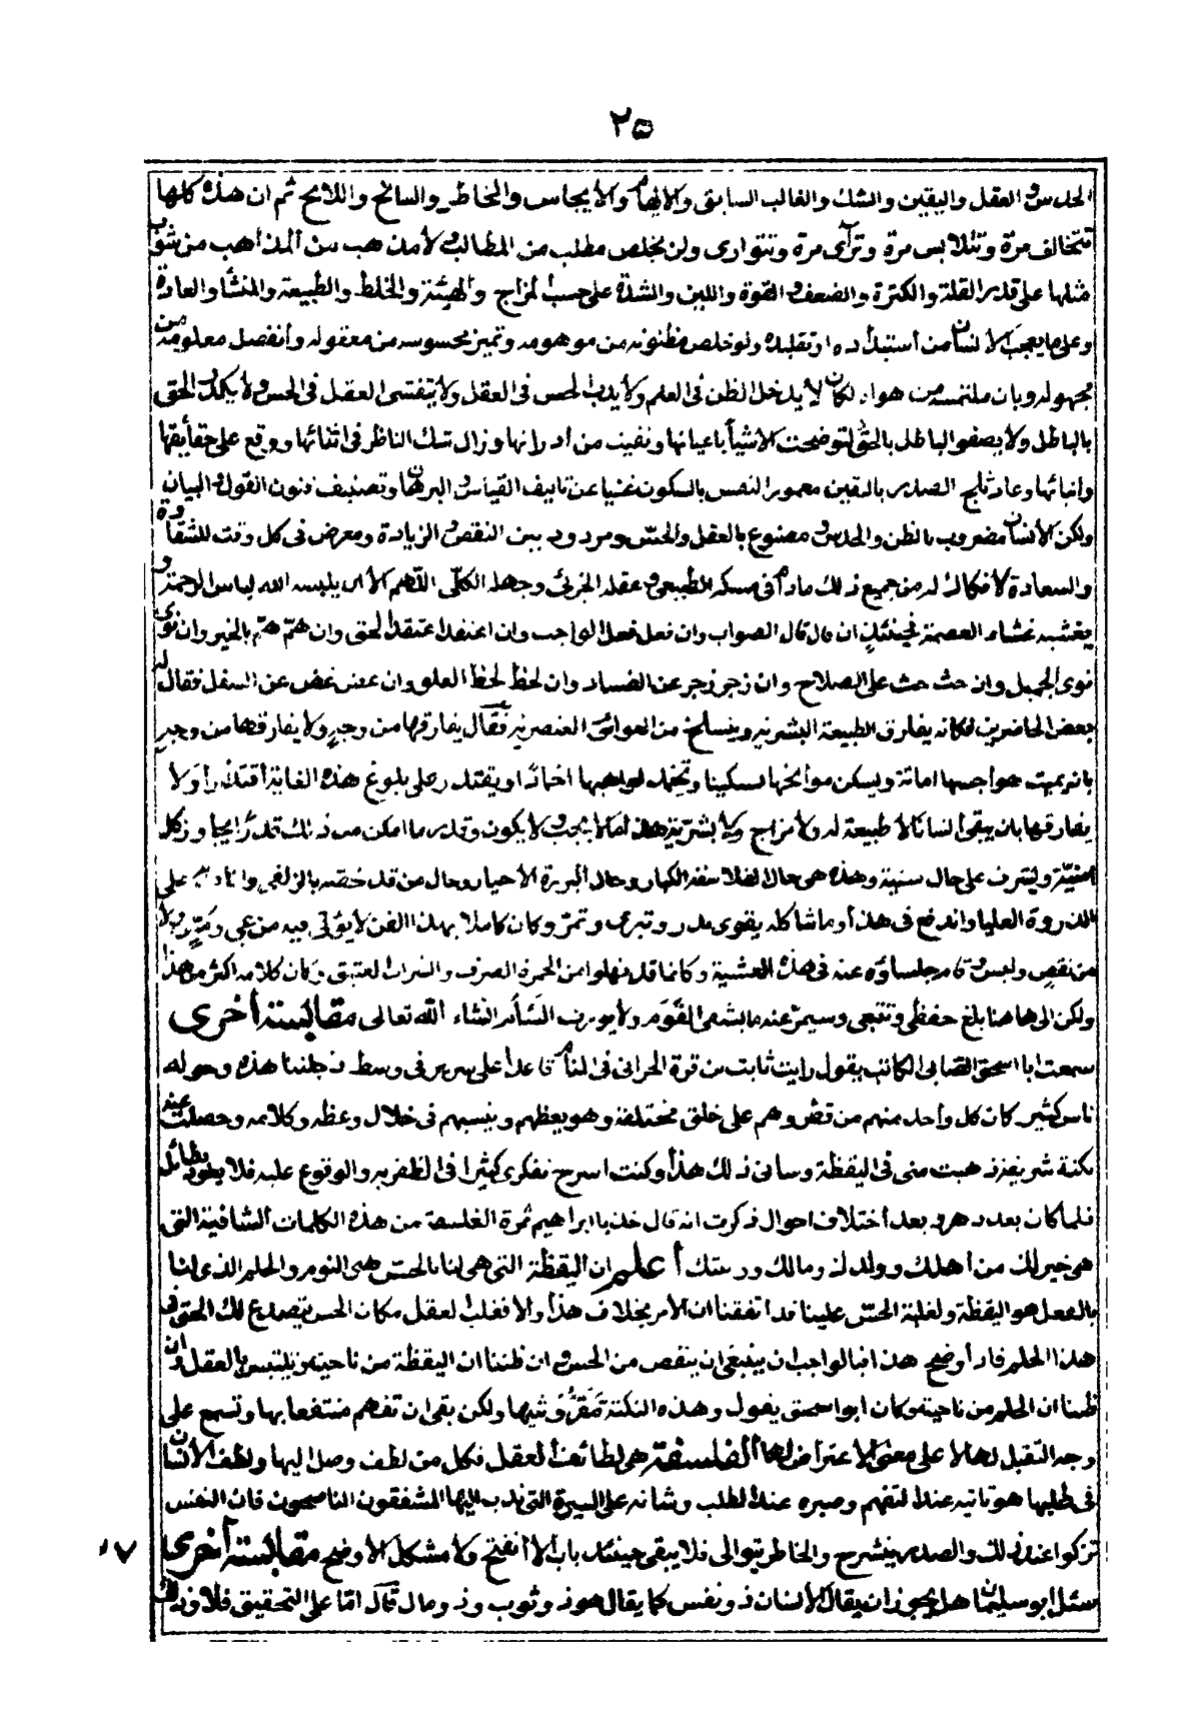 ٢٥
الحدس والعقل واليقين والشك والغالب السابق والالهام والايجاس والخاطر والسانح واللايح ثم ان هذه كلها
تتخالف مرة وتتلابس مرة وتراآى مرة وتتوارى ولن يخلص مطلب من المطالب ولا مذهب من المذاهب من شوب
مثلها على قدر القلة والكثرة والضعف والقوة واللين والشدة على حسب المزاج والهيئة والخلط والطبيعة والمنشأ والعادة
وعلى ما يعجب الانسان من استبداده او تقليده ولو خلص مظنونه من موهومه وتميز محسوسه من معقوله وأنفصل معلومه من
مجهوله وبان ملتمسه من هواه لكان لا يدخل الظن فى العلم ولا يدب الحس فى العقل ولا يتفشى العقل فى الحس ولا يكدر الحق
بالباطل ولا يصفو الباطل بالحق لتوضحت الاشيأ باعيانها ونفيت من ادرانها وزال شك الناظر فى اثنائها ووقع على حقأيقها
وانبائها وعاد ثلج الصدر باليقين معمور النفس بالسكون غنيا عن تاليف القياس والبرهان وتصنيف فنون القول والبيان
ولكن الأنسان مضروب بالظن والحدس ومصنوع بالعقل والحسّ ومردود بين النقص والزيادة ومعرض فى كل وقت للشقاوة
والسعادة لا فكاك له من جميع ذلك مادام فى مسكه الطبيعى وعقله الجزئى وجهله الكلّى اللّهم الا ان يلبسه الله لباس الرحمة و
يغشيه غشاء العصمة فحينئذٍ ان قال قال الصواب وان فعل فعل الواجب وان اعتقد اعتقد الحق وان همّ همّ بالخير وان نوى
نوى الجميل وان حث حث على الصلاح وان زجر زجر عن الفساد وان لحظ لحظ العلو وان غض غض عن السفل فقال له
بعض الحاضرين فكانه يفارق الطبيعة البشرية وينسلخ من العوائق العنصرية فقال يفارقها من وجهٍ ولا يفارقها من وجه
بانه يميت هواجسها اماتة ويسكن سوانحها تسكينا وتخمد لواهبها اخمادا او يفتد رحلى بلوغ هذه الغاية أقتدارا ولا
يفارقها بان يبقى انسانا لا طبيعة له ولا مزاج ولا بشرية هذا ما لا يجب ولا يكون وقدر ما امكن من ذلك قدر انجبا وزكل
امنيّة وليشرف على حال سنية وهذه هى حال الفلاسفة الكبار وحال البررة الاحيار وحال من قد خصّه بالزلفى وانادبه على
الذروة العليا واندفع فى هذا وما شاكله يقوى هدر وتبرى وتمرّ وكان كاملا بهذا الفن لا يؤتى فيه من عى ركة ولا
من نقص ولبس وقام جلساؤه عنه فى هذه العشية وكانما قد نهلوا من الخمرة الصرف والشراب العتيق وكان كلامه اكثر من هذا
ولكن الى هاهنا بلغ حفظى وتتبعى وسيمرّ عنه ما يشفى القوم ولا يورث السَأم انشاء الله تعالى مقابسة أخرى
سمعت ابا اسحق الصابى الكاتب يقول رايت ثابت بن قرة الحرانى فى المنام قاعدا على سرير فى وسط دجلتنا هذه وحوله
ناس كثير كان كل واحد منهم من قطر وهم على خلق مختلفة وهو يعظهم ويبسم فى خلال وعظه وكلامه وحصلت عنه
نكتة شريفة ذهبت منى فى اليقظة وسانى ذلك هذا وكنت اسرح بفكرى كثيرا فى الظفر به والوقوع عليه فلا يعود بطائل
فلما كان بعد دهر وبعد اختلاف احوال ذكرت انه قال خذ يا ابراهيم ثمرة الفلسفة من هذه الكلمات الشافية التى
هى خير لك من اهلك وولدك ومالك ورتبتك أعلم ان اليقظة التى هى لنا بالحسّ هى النوم والحلم الذى لنا
بالفعل هو اليقظة ولغلبة الحسّ علينا قد اتفقنا ان الامر بخلاف هذا والا فغلب العقل مكان الحس يتصدع لك الحق فى
هذا الحلم فاذا وضح هذا فبالواجب ان ينبغى ان ينقص من الحس وان ظننا ان اليقظة من ناحيته ونلتبس بالعقل وان
ظننا ان الحلم من ناحيته وكان ابو اسحق يقول وهذه النكتة مَقرٌ وشيها ولكن بقى ان تفهم منتفعا بها وتسمع على
وجه التقبل لها لا على معنى الاعتراض لها الفلسفة هى لطائف العقل فكل من لطف وصل اليها ولطف الأنسان
فى طلبها هو تانيه عند التفهم وصبره عند الطلب وشانه على السيرة التى ندب اليها المشفقون الناصحون فان النفس
تزكوا عند ذلك والصدر ينشرح والخاطر يتوالى فلا يبقى حينئذ باب الا أنفتح ولا مشكل الا وضح مقابسة أخرى
١٧
سئل ابو سليمان هل يجوز ان يقال الانسان ذو نفس كما يقال هو ذو ثوب وذو مال قال امّا على التحقيق فلا وذلك